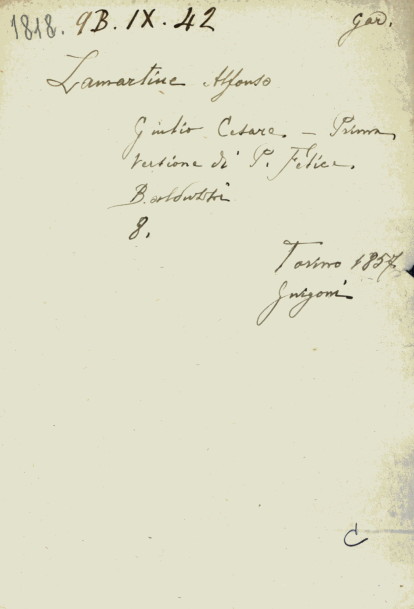 1818. 9B.IX.42 Gar.
Lamartine Alfonso
Giulio Cesare. - Prima
versione di P. Felice.
8.
Torino 1857
Guigoni
C